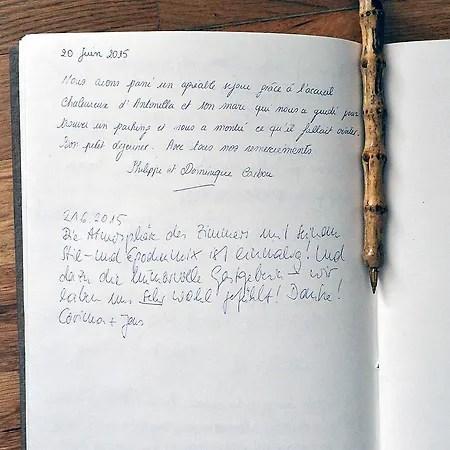 20 Juin 2015
Nous avons passé un agréable séjour grâce à l'accueil
Chaleureux d'Antonella et son mari qui nous a guidé pour
trouver un parking et nous a montré ce qu'il fallait visiter.
Bon petit déjeuner. Avec tous nos remerciements.
Philippe et Dominique
21.6.2015
Die Atmosphäre des Zimmers mit seinem
Stil- und Epochenmix ist einmalig! Und
dazu die humorvolle Gastgeberin → wir
haben uns sehr wohl gefühlt! Danke!
Corinna + Jens